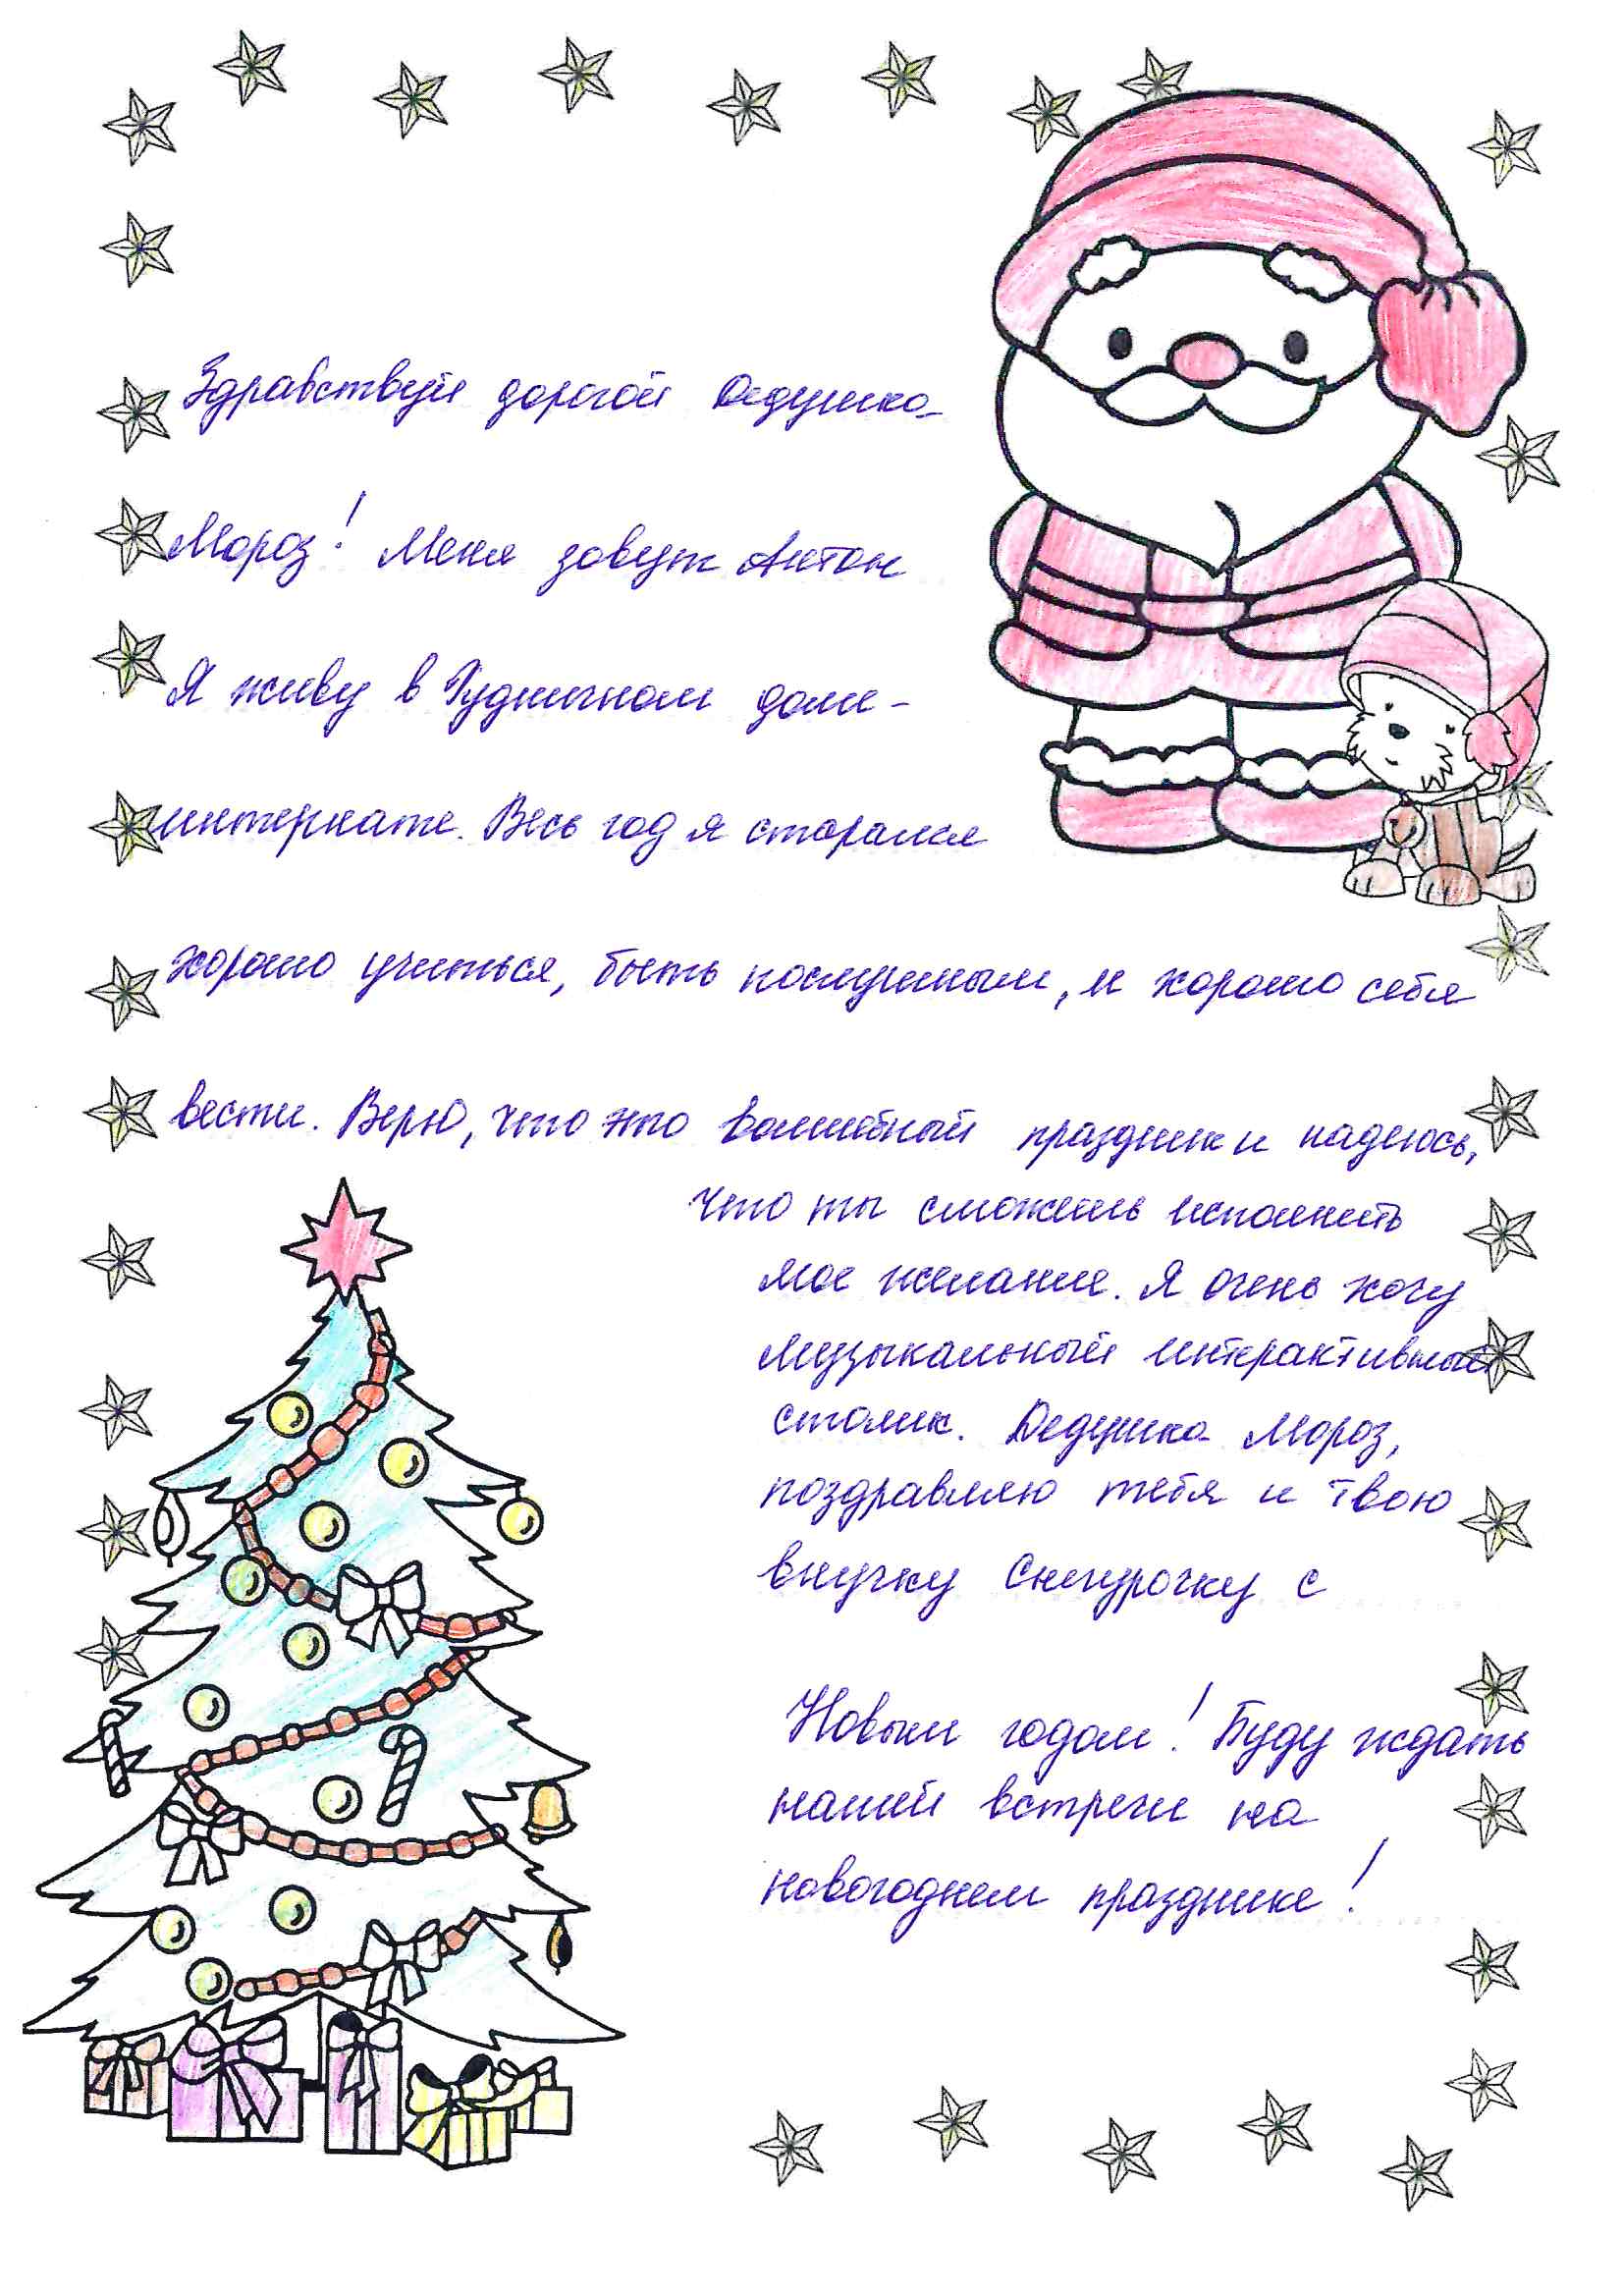 Здравствуй дорогой Дедушка
Мороз! Меня зовут Антон
Я живу в Рудничном доме-
интернате. Весь год я старался
хорошо учиться, быть послушным, и хорошо себя
вести. Верю, что это волшебный праздник и надеюсь,
что ты сможешь исполнить
мое желание. Я очень хочу
музыкальный интерактивный
столик. Дедушка Мороз,
поздравляю тебя и твою
внучку Снегурочку с
Новым годом! Буду ждать
нашей встречи на
новогоднем празднике!